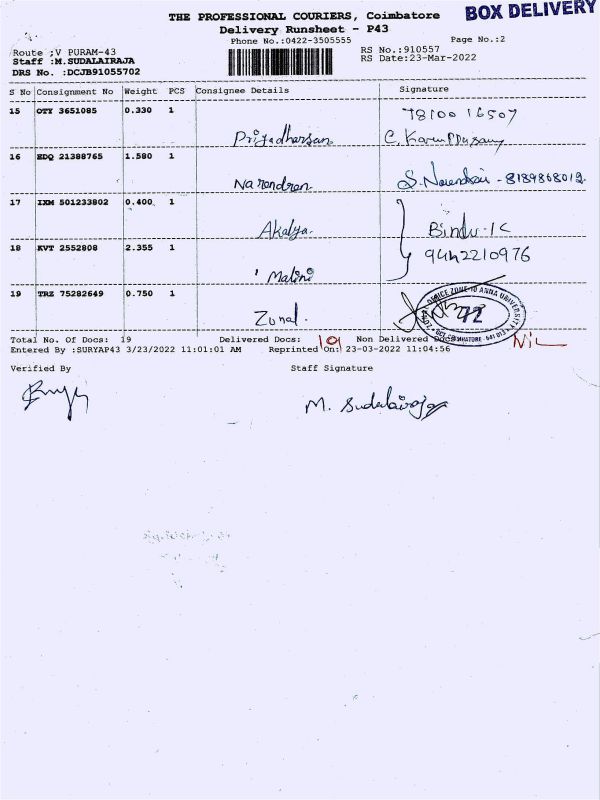 THE PROFESSIONAL COURIERS, Coimbatore
BOX DELIVERY
Delivery Runsheet - P43
Phone No.:0422-3505555
Page No.:2
Route :V PURAM-43
RS No.:910557
Staff :M.SUDALAIRAJA
RS Date:23-Mar-2022
DRS No. :DCJB91055702
S No Consignment No Weight PCS Consignee Details Signature
15 OTY 3651085 0.330 1
78100 16507
Priyadharsan
16 EDQ 21388765 1.580 1
Narendran
- 8189868012
17 IXM 501233802 0.400 1
Akalya
Bindu
18 KVT 2552808 2.355 1
Malini
9442210976
19 TRZ 75282649 0.750 1
Zonal
OFFICE ZONE-10 ANNA UNIVERSITY
Total No. Of Docs: 19 Delivered Docs: 19 Non Delivered Docs: NIL
Entered By :SURYAP43 3/23/2022 11:01:01 AM Reprinted On: 23-03-2022 11:04:56
Verified By Staff Signature
M. Sudalairaja